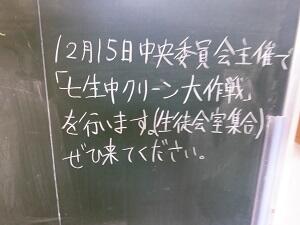 12月15日中央委員会主催で
「七生中クリーン大作戦」
を行います。(生徒会室集合)
ぜひ来てください。